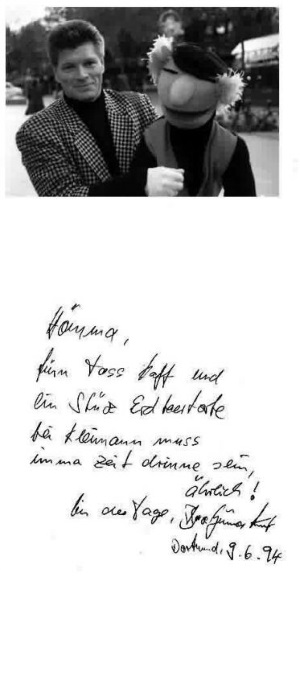 Hömma,
fürn Tass Kaff und
ein Stück Erdbeertorte
bei Kleimann muss
imma Zeit drinne sein,
ährlich!
bis die Tage, Günna
Dortmund, 9.6.94